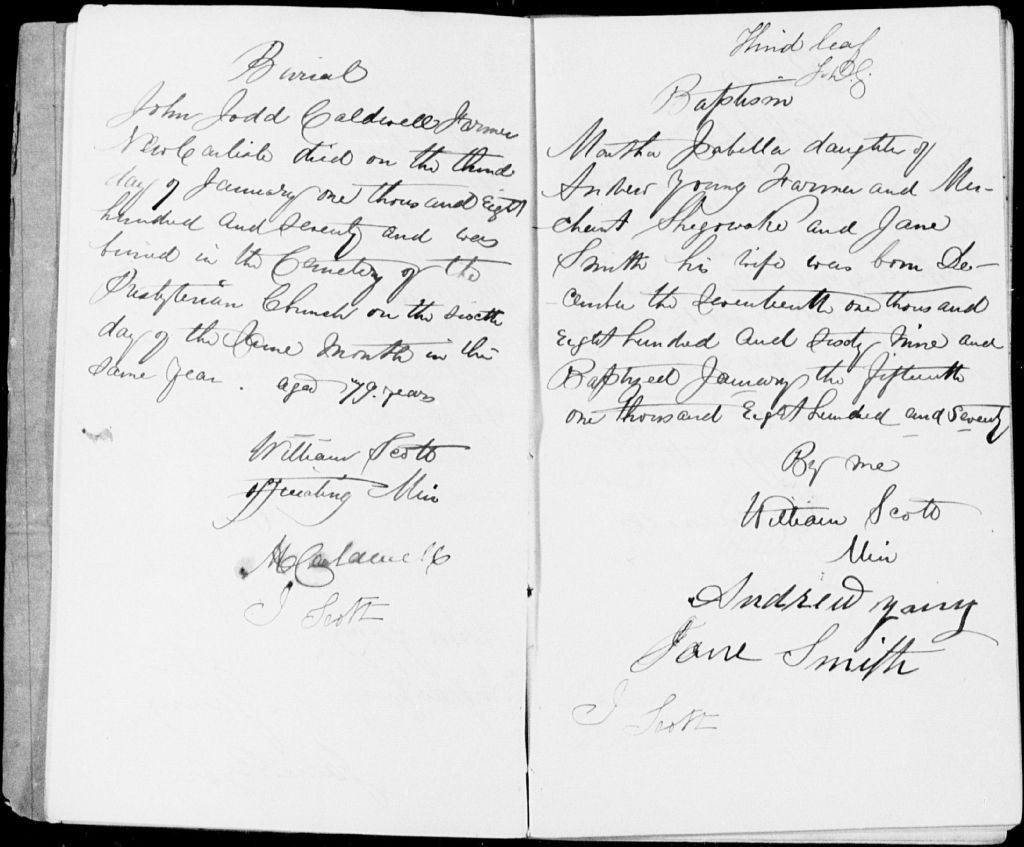 Burial
John Todd Caldwell Farmer
New Carlisle died on the third
day of January one thousand Eight
hundred and seventy and was
buried in the Cemetery of the
Presbyterian Church on the sixth
day of the Same Month in the
Same Year. aged 79. years
William Scott
officiating Min
Caldwell
J Scott
Third leaf
Baptism
Martha Isabella daughter of
Andrew Young Farmer and Mer-
chant Shegowake and Jane
Smith his wife was born De-
cember the Seventeenth one thousand
Eight hundred and Sixty Nine and
Baptized January the fifteenth
one thousand Eight hundred and Seventy
By me
William Scott
Min
Andrew young
Jane Smith
J Scott